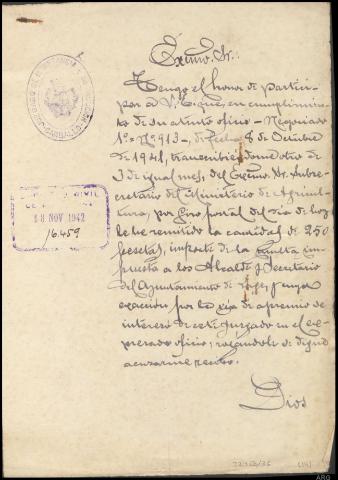 Excmo. Sr.:
Tengo el honor de partici-
par a V. Excª, en cumplimien-
to de su atento oficio - Negociado
1º - Nº 913 -, de fecha 8 de Octubre
de 1941, transcribiendome otro de
3 de igual mes, del Excmo. Sr. Subse-
cretario del Ministerio de Agricul-
tura, por giro postal del día de hoy
le he remitido la cantidad de 250
pesetas, importe de la multa im-
puesta a los Alcalde y Secretario
del Ayuntamiento de
exacción por la vía de apremio se
interesó de este Juzgado en el ex-
presado oficio; rogándole se digne
acusarme recibo.
Dios
CIVIL
18 NOV 1942
16.459
ARG